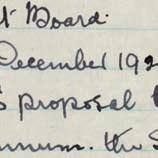 t Board.
December 192
s proposal
annum. the S